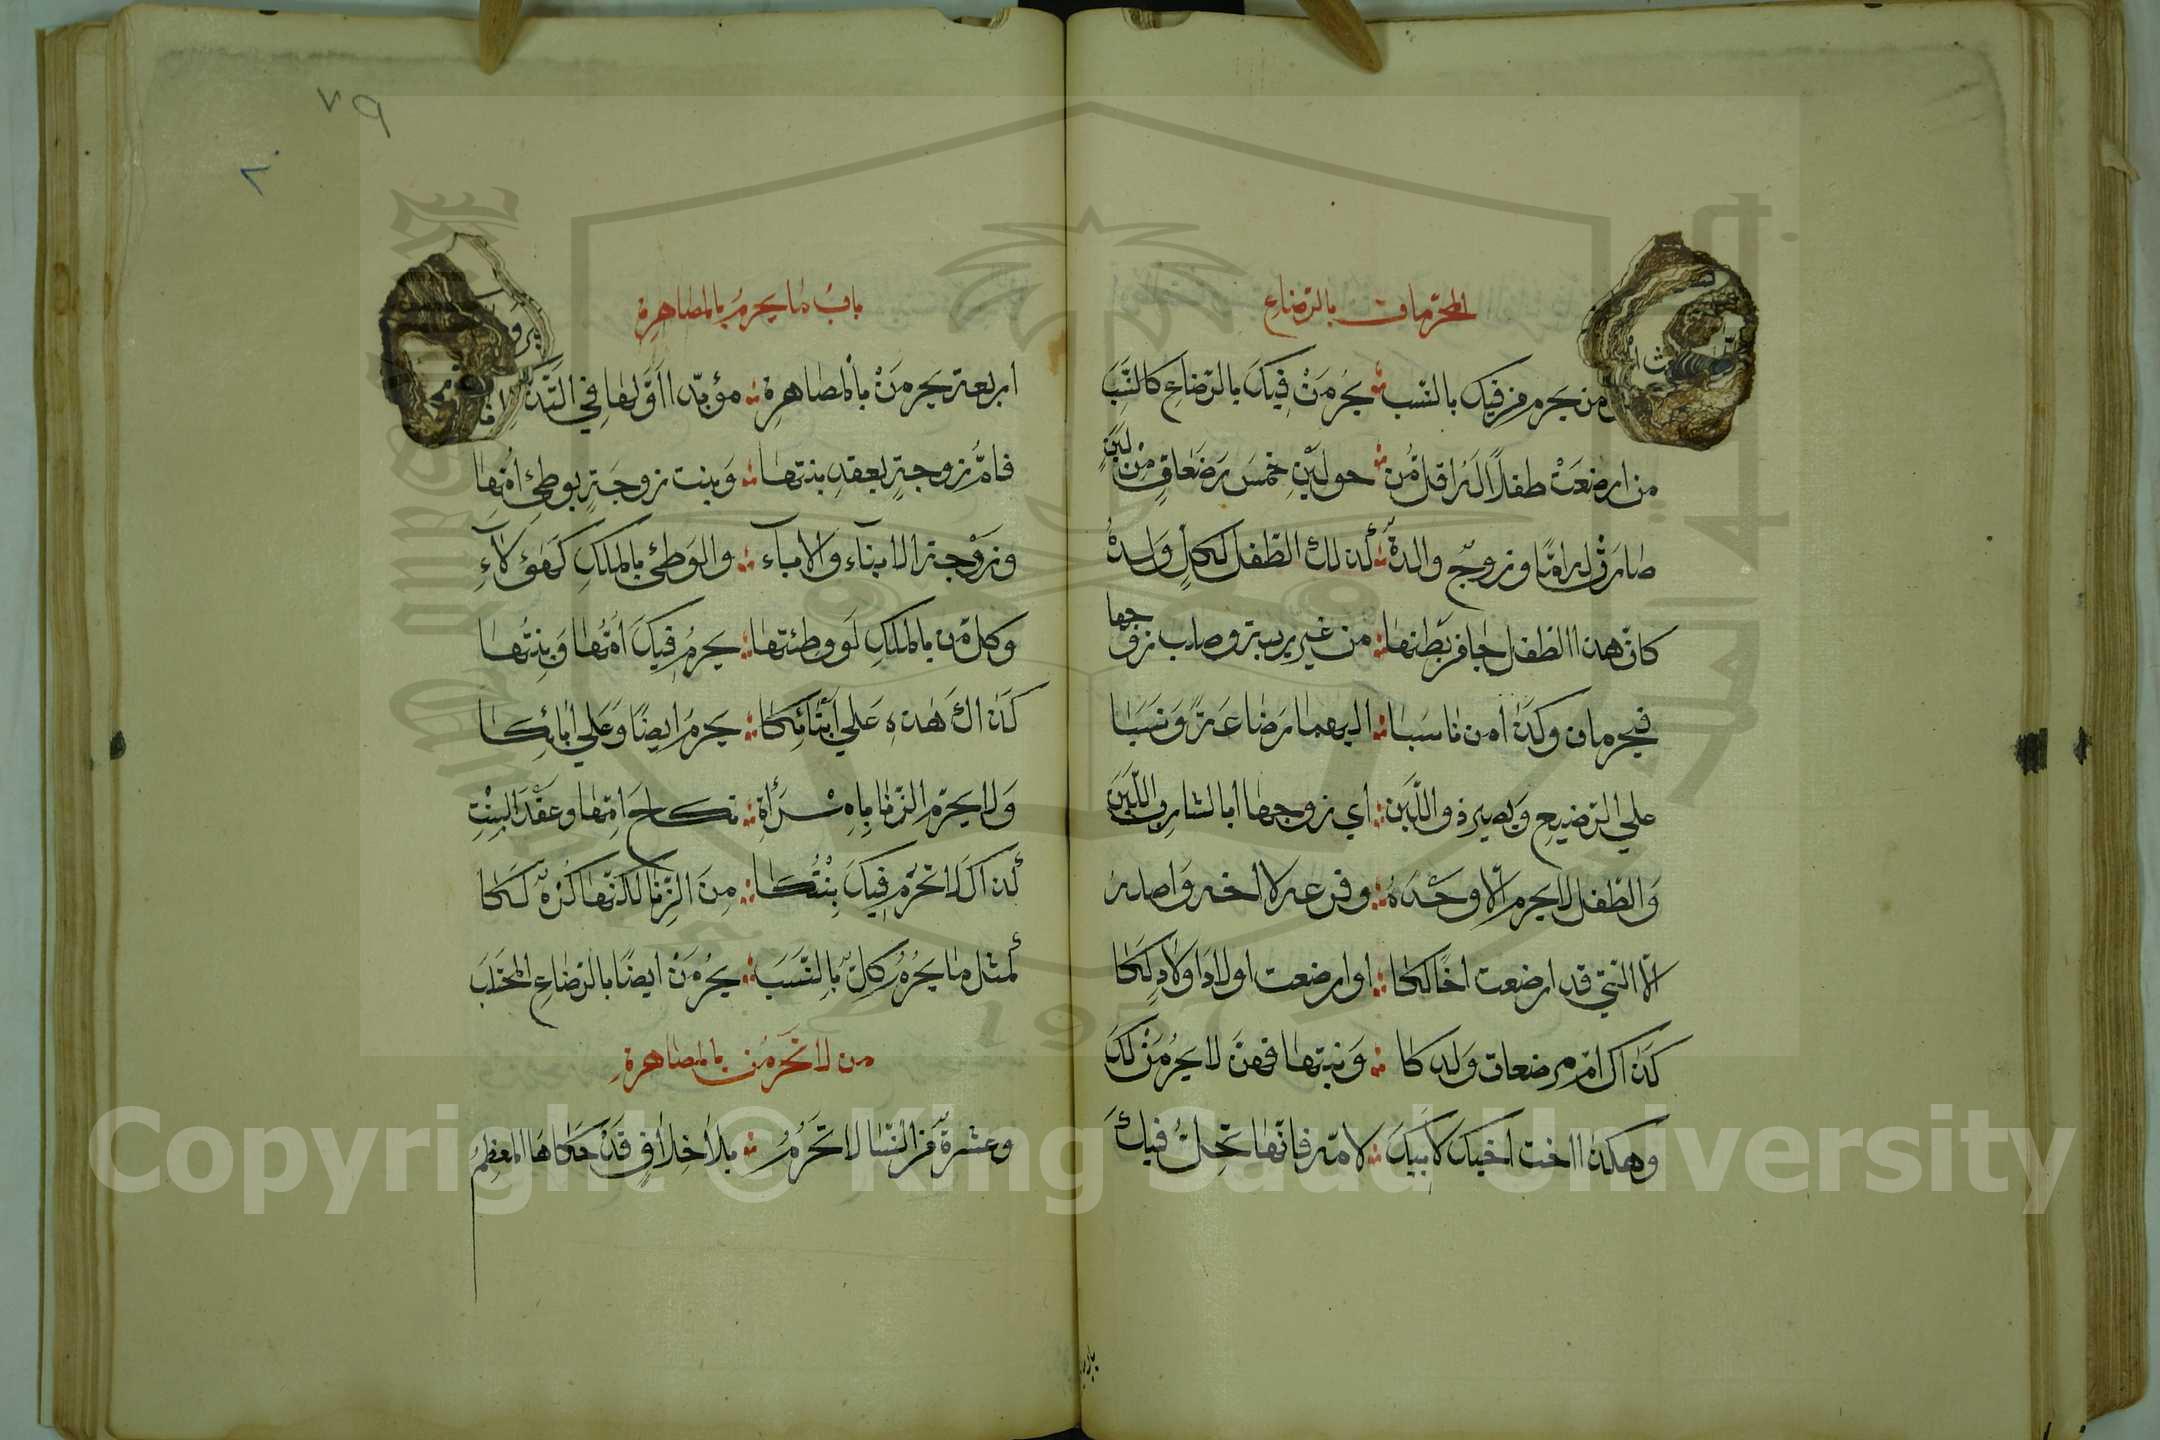 المحرمات بالرضاع
من يحرم من فيك بالنسب ؞ يحرمن فيك بالرضاع كالنسب
من ارضعت طفلا لم اقل من ؞ حولين خمس رضعات من لبن
صارت له اما وزوج والدة ؞ كذلك الطفل لكل ولده
كان هذا الطفل جا من بطنها ؞ من غير ريبة وصلب زوجها
فيحرمان وكذا من ناسبا ؞ اليهما رضاعة ونسبا
علي الرضيع ويصير ذو اللبن ؞ اي زوجها ابا لشارب اللبن
والطفل لا يحرم الا وحده ؞ وفرعه لا اخه واصله
الا التي قد ارضعت اخا لكا ؞ او ارضعت اولاد اولاد لكا
كذاك ام مرضعات ولدكا ؞ وبنتها فهن لا يحرمن لك
وهكذا اخت اخيك لابيك ؞ لامه فانها تحل فيك
باب ما يحرم بالمصاهرة
اربعة يحرمن بالمصاهرة ؞ مؤبدا اولها في
فام زوجة بعقد بنتها ؞ وبنت زوجة بوطئ امها
وزوجة الابناء والاباء ؞ والوطئ بالملك كهؤلاء
وكل من بالملك لو وطئتها ؞ يحرم فيك امها وبنتها
كذاك هذه علي ابنائكا ؞ يحرم ايضا وعلي ابائكا
ولا يحرم الزنا بامراة ؞ نكاح امها وعقد البنت
كذاك لا تحرم فيك بنتكا ؞ من الزنا لكنها كره لكا
كمثل ما يحرم كل بالنسب ؞ يحرمن ايضا بالرضاع المجتلب
من لا تحرمن بالمصاهرة
وعشرة من النسا لا تحرم ؞ بلا خلاف قد حكاها المعظم
٧٩
٨٠
King Saud University
1957
Copyright © King Saud University